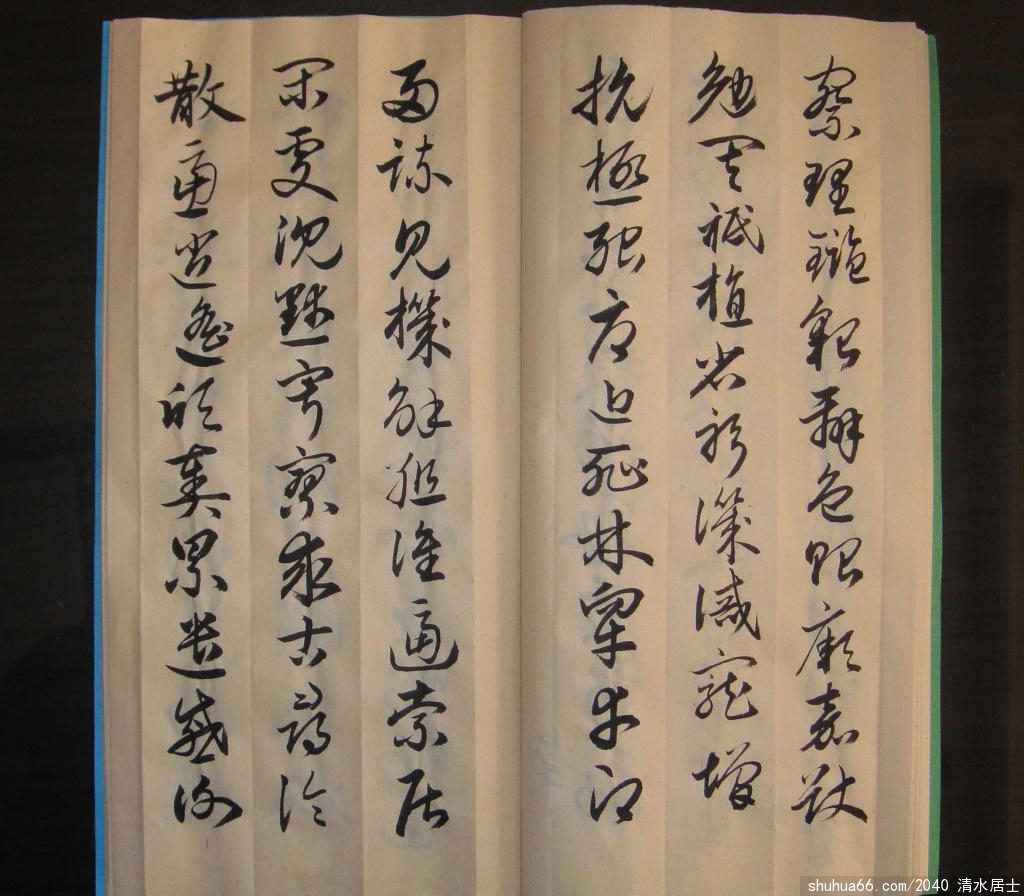 察理鑑貌辨色貽厥嘉猷
勉其祗植省躬譏誡寵增
抗極殆辱近恥林皋幸即
兩疏見機解組誰逼索居
閑處沉默寂寥求古尋論
散慮逍遙欣奏累遣慼謝
shuhua66.com/2040 清水居士